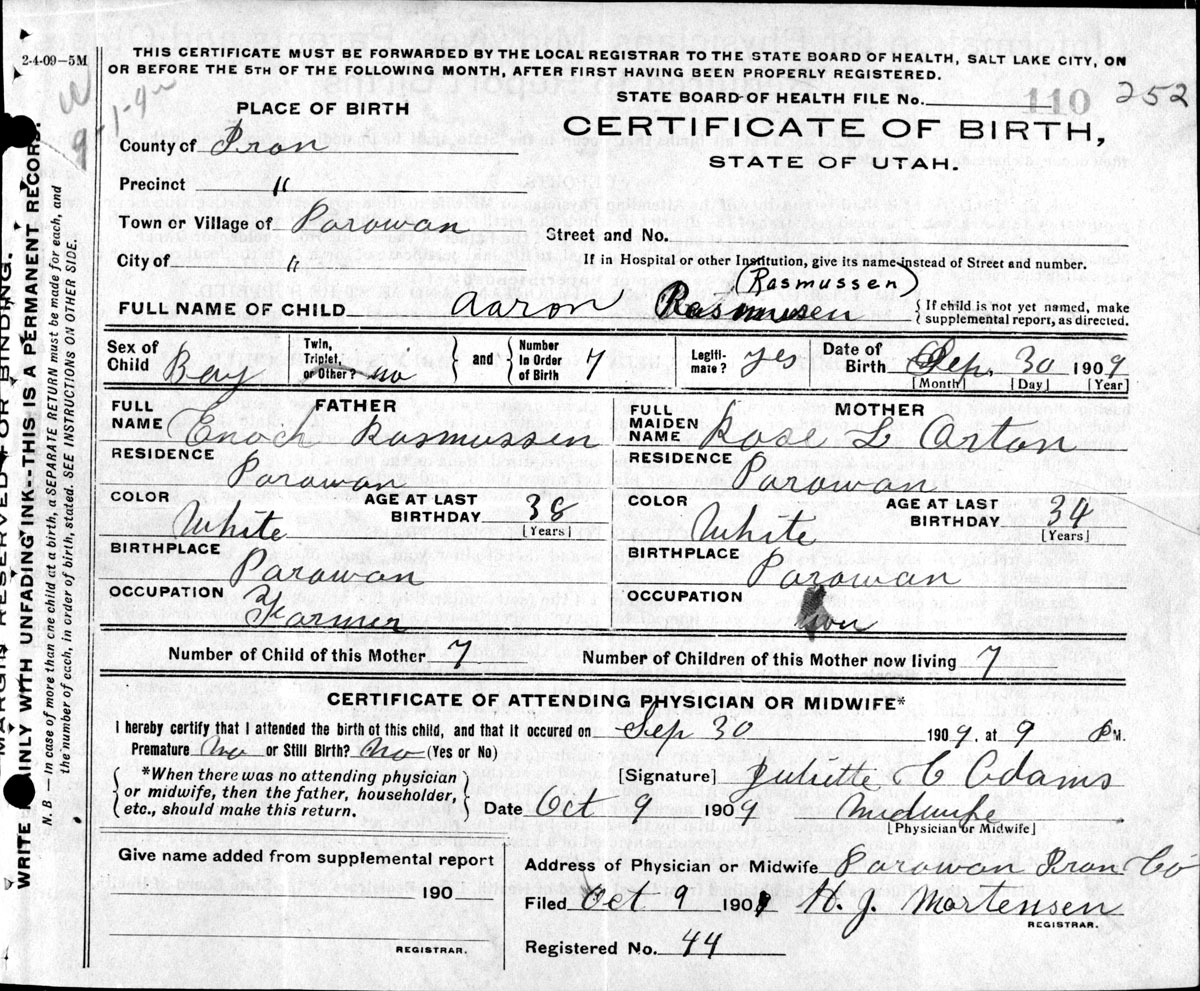 2-4-09-5M
THIS CERTIFICATE MUST BE FORWARDED BY THE LOCAL REGISTRAR TO THE STATE BOARD OF HEALTH, SALT LAKE CITY, ON
OR BEFORE THE 5TH OF THE FOLLOWING MONTH, AFTER FIRST HAVING BEEN PROPERLY REGISTERED.
PLACE OF BIRTH
STATE BOARD OF HEALTH FILE No. 110 252
CERTIFICATE OF BIRTH,
STATE OF UTAH.
County of Iron
Precinct "
Town or Village of Parowan
Street and No.
City of "
If in Hospital or other Institution, give its name instead of Street and number.
(Rasmussen)
FULL NAME OF CHILD Aaron Rasmusen { If child is not yet named, make
supplemental report, as directed.
Sex of Child Boy Twin, Triplet, or Other? no } and { Number In Order of Birth 7 Legitimate? yes Date of Birth Sep. 30 1909
[Month] [Day] [Year]
FATHER
FULL NAME Enoch Rasmussen
RESIDENCE Parowan
COLOR White AGE AT LAST BIRTHDAY 38 [Years]
BIRTHPLACE Parowan
OCCUPATION Farmer
MOTHER
FULL MAIDEN NAME Rose L Orton
RESIDENCE Parowan
COLOR White AGE AT LAST BIRTHDAY 34 [Years]
BIRTHPLACE Parowan
OCCUPATION
Number of Child of this Mother 7 Number of Children of this Mother now living 7
CERTIFICATE OF ATTENDING PHYSICIAN OR MIDWIFE*
I hereby certify that I attended the birth of this child, and that it occured on Sep 30 1909, at 9 P M.
Premature no or Still Birth? no (Yes or No)
{ *When there was no attending physician
or midwife, then the father, householder,
etc., should make this return. }
[Signature] Juliette C Adams
Date Oct 9 1909 Midwife
[Physician or Midwife]
Give name added from supplemental report
190
REGISTRAR.
Address of Physician or Midwife Parowan Iron Co
Filed Oct 9 1909 H. J. Mortensen
REGISTRAR.
Registered No. 44
MARGIN RESERVED FOR BINDING.
WRITE PLAINLY WITH UNFADING INK--THIS IS A PERMANENT RECORD.
N. B. — In case of more than one child at a birth, a SEPARATE RETURN must be made for each, and
the number of each, in order of birth, stated. SEE INSTRUCTIONS ON OTHER SIDE.